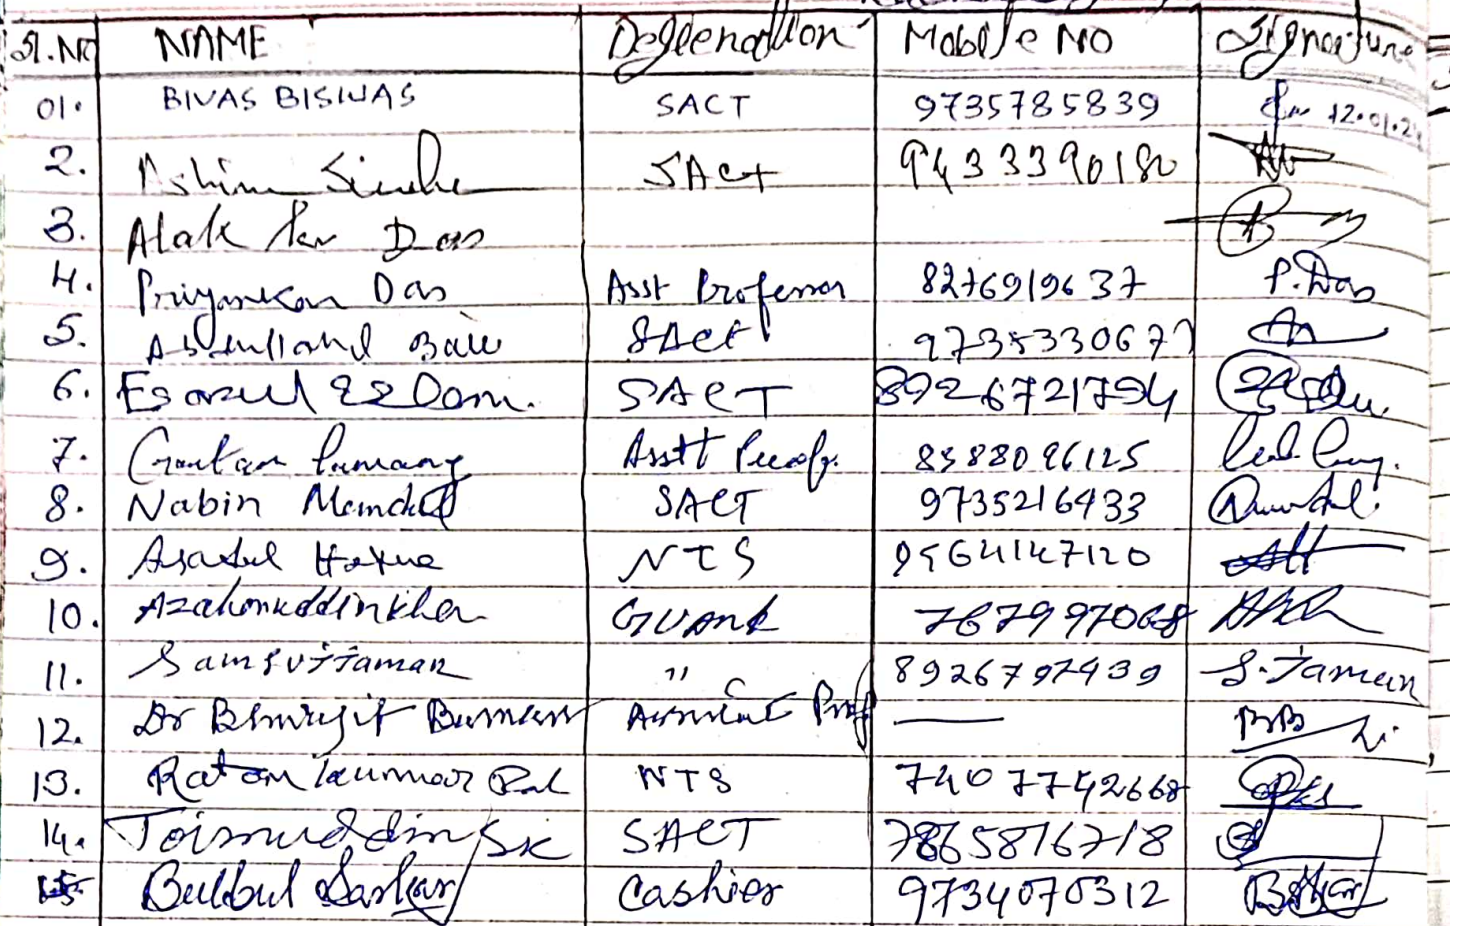 Sl.No NAME Deglenation Mobile No Signature
01. BIVAS BISWAS SACT 9735785839 12.01.24
2. Ashim Sinha SACT 9433390180
3. Alak Das
4. Priyankar Das Asst Professor 8276919637 P.Das
5. Bari SACT 9735330677
6. Esarul SACT 8926721794
7. Goutam Asstt 8388096125
8. Nabin Mondal SACT 9735216433
9. Asadul Haque NTS 9564147120
10. Azaharuddin Khan GUARD 7679997068
11. Samsujjaman " 8926797439 S.Jaman
12. Dr Barman Associate Prof —
13. Ratan Kumar Pal NTS 7407742668
14. Toimuddin Sk SACT 7865816718
15 Bulbul Sarkar Cashier 9734070312